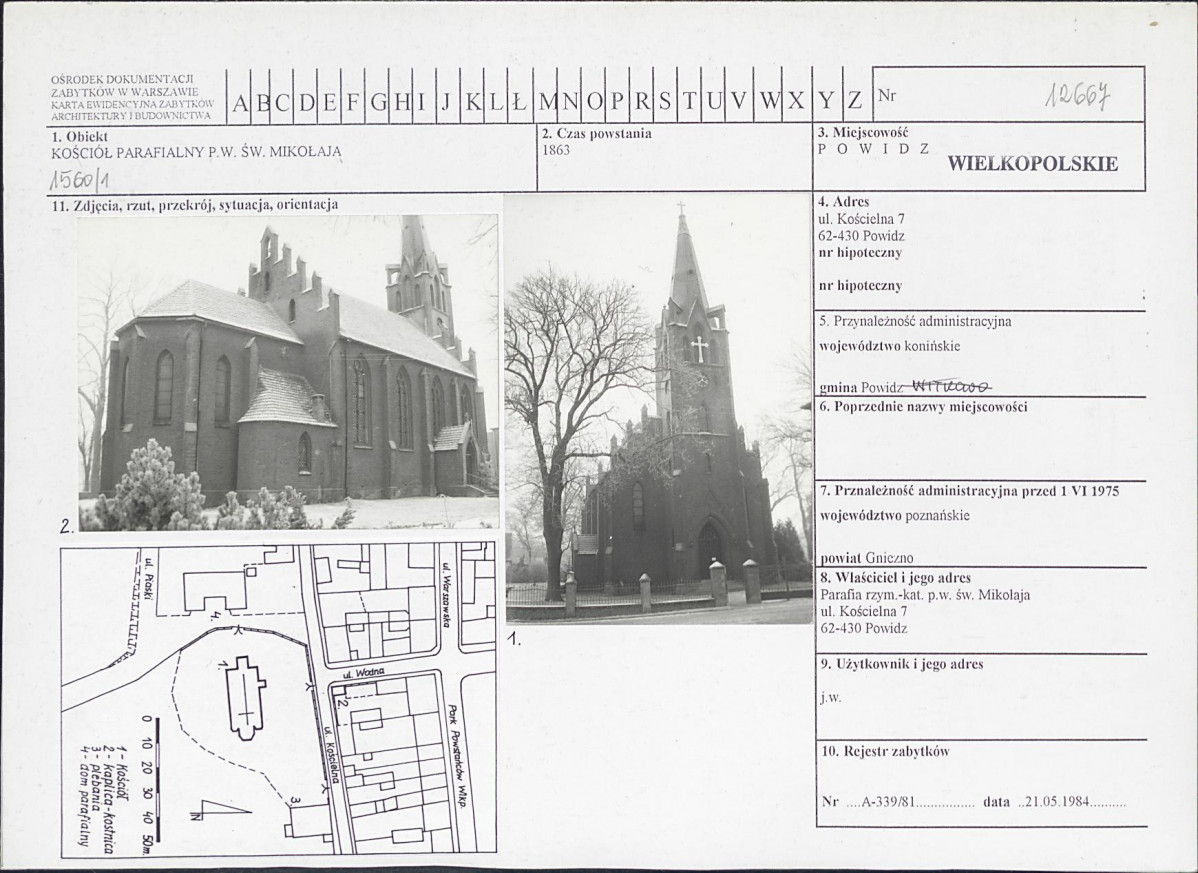 OŚRODEK DOKUMENTACJI
ZABYTKÓW W WARSZAWIE
KARTA EWIDENCYJNA ZABYTKÓW
ARCHITEKTURY I BUDOWNICTWA
A B C D E F G H I J K L Ł M N O P R S T U V W X Y Z
Nr 12667
1. Obiekt
KOŚCIÓŁ PARAFIALNY P.W. ŚW. MIKOŁAJĄ
1560/1
2. Czas powstania
1863
3. Miejscowość
P O W I D Z
WIELKOPOLSKIE
11. Zdjęcia, rzut, przekrój, sytuacja, orientacja
2.
1.
4. Adres
ul. Kościelna 7
62-430 Powidz
nr hipoteczny
nr hipoteczny
5. Przynależność administracyjna
województwo konińskie
gmina Powidz WITKOWO
6. Poprzednie nazwy miejscowości
7. Prznależność administracyjna przed 1 VI 1975
województwo poznańskie
powiat Gniezno
8. Właściciel i jego adres
Parafia rzym.-kat. p.w. św. Mikołaja
ul. Kościelna 7
62-430 Powidz
9. Użytkownik i jego adres
j.w.
10. Rejestr zabytków
Nr ....A-339/81................. data ..21.05.1984..........
ul. Piaski
ul. Warszawska
ul. Wodna
ul. Kościelna
Park Powstańców Wlkp.
1.
2.
3.
4.
N
0 10 20 30 40 50m.
1- Kościół
2- kaplica-kostnica
3- plebania
4- dom parafialny